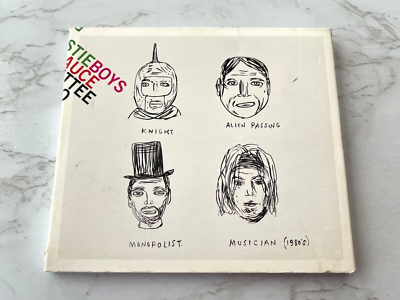 STIEBOYS
AUCE
TTEE
O
KNIGHT
ALIEN PASSING
MONOPOLIST.
MUSICIAN (1980'S)